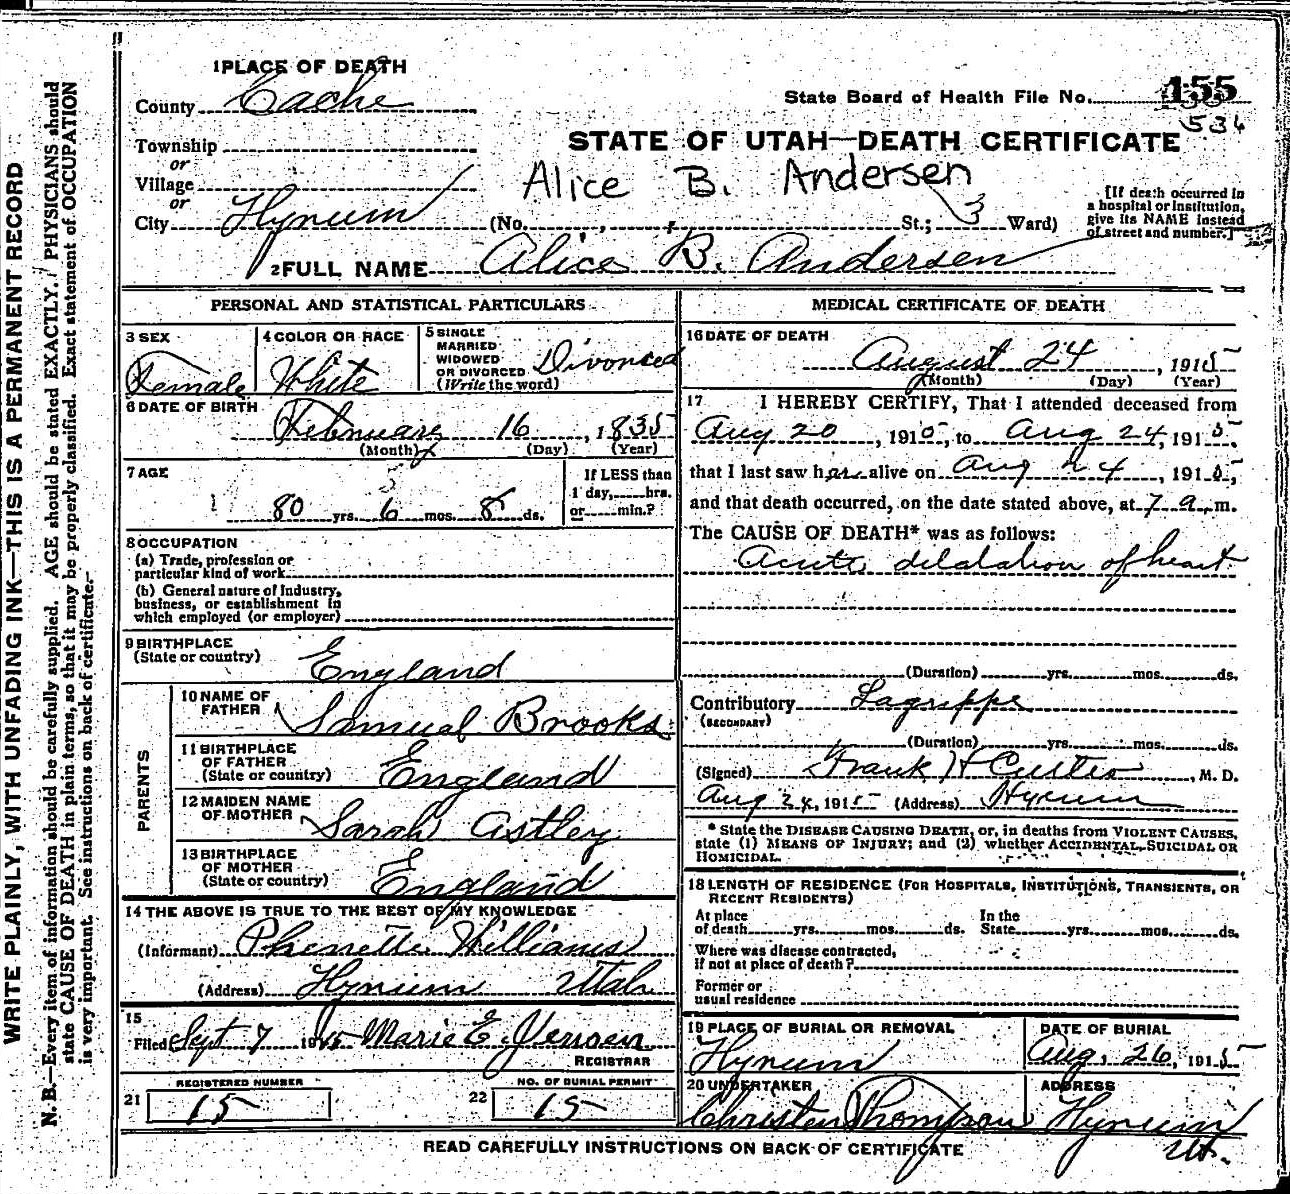 WRITE PLAINLY, WITH UNFADING INK—THIS IS A PERMANENT RECORD
N. B.—Every item of information should be carefully supplied. AGE should be stated EXACTLY. PHYSICIANS should
state CAUSE OF DEATH in plain terms, so that it may be properly classified. Exact statement of OCCUPATION
is very important. See instructions on back of certificate.
1 PLACE OF DEATH
County Cache
State Board of Health File No. 155
536
Township
or
Village
or
City Hyrum
STATE OF UTAH—DEATH CERTIFICATE
Alice B. Andersen
(No. , St.; 3 Ward)
[If death occurred in
a hospital or institution,
give its NAME instead
of street and number.]
2 FULL NAME Alice B. Andersen
PERSONAL AND STATISTICAL PARTICULARS
3 SEX
Female
4 COLOR OR RACE
White
5 SINGLE
MARRIED
WIDOWED
OR DIVORCED
(Write the word)
Divorced
6 DATE OF BIRTH
February 16, 1835
(Month) (Day) (Year)
7 AGE
80 yrs. 6 mos. 8 ds.
If LESS than
1 day, hrs.
or min.?
8 OCCUPATION
(a) Trade, profession or
particular kind of work
(b) General nature of Industry,
business, or establishment in
which employed (or employer)
9 BIRTHPLACE
(State or country)
England
PARENTS
10 NAME OF
FATHER
Samual Brooks
11 BIRTHPLACE
OF FATHER
(State or country)
England
12 MAIDEN NAME
OF MOTHER
Sarah Astley
13 BIRTHPLACE
OF MOTHER
(State or country)
England
14 THE ABOVE IS TRUE TO THE BEST OF MY KNOWLEDGE
(Informant) Williams
(Address) Hyrum Utah
15
Filed Sept 7 1915 Marie E. Jensen
REGISTRAR
21 REGISTERED NUMBER
15
22 NO. OF BURIAL PERMIT
15
MEDICAL CERTIFICATE OF DEATH
16 DATE OF DEATH
August 24, 1915
(Month) (Day) (Year)
17 I HEREBY CERTIFY, That I attended deceased from
Aug 20, 1915, to Aug 24, 1915,
that I last saw her alive on Aug 24, 1915,
and that death occurred, on the date stated above, at 7 a. m.
The CAUSE OF DEATH* was as follows:
Acute dilatation of heart
(Duration) yrs. mos. ds.
Contributory Lagrippe
(SECONDARY)
(Duration) yrs. mos. ds.
(Signed) Frank H Curtis, M. D.
Aug 24, 1915 (Address) Hyrum
* State the DISEASE CAUSING DEATH, or, in deaths from VIOLENT CAUSES,
state (1) MEANS OF INJURY; and (2) whether ACCIDENTAL, SUICIDAL OR
HOMICIDAL.
18 LENGTH OF RESIDENCE (FOR HOSPITALS, INSTITUTIONS, TRANSIENTS, OR
RECENT RESIDENTS)
At place
of death yrs. mos. ds.
In the
State yrs. mos. ds.
Where was disease contracted,
if not at place of death?
Former or
usual residence
19 PLACE OF BURIAL OR REMOVAL
Hyrum
DATE OF BURIAL
Aug. 26, 1915
20 UNDERTAKER
Christen Thompson
ADDRESS
Hyrum
Ut.
READ CAREFULLY INSTRUCTIONS ON BACK OF CERTIFICATE